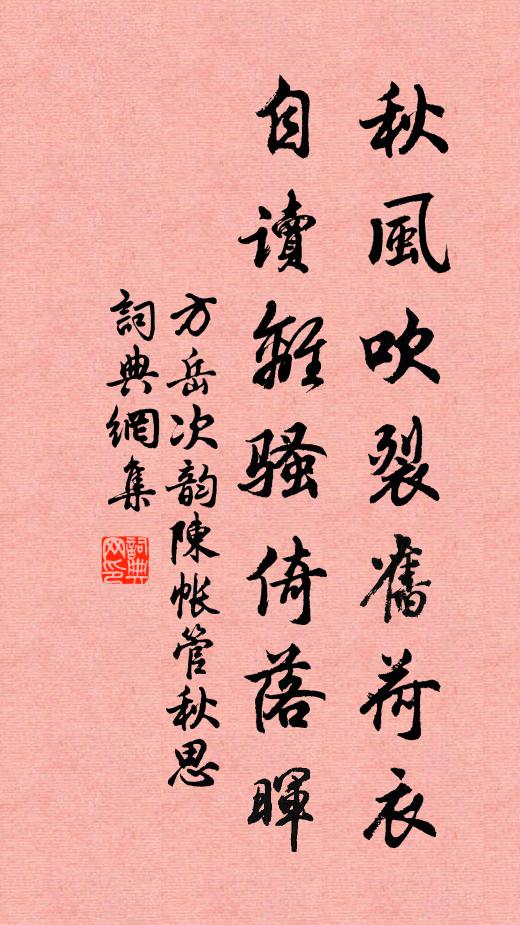 秋風吹裂舊荷衣
自读離骚倚落暉
方岳次韵陳帐管秋思
詞典網集
詞典
网印